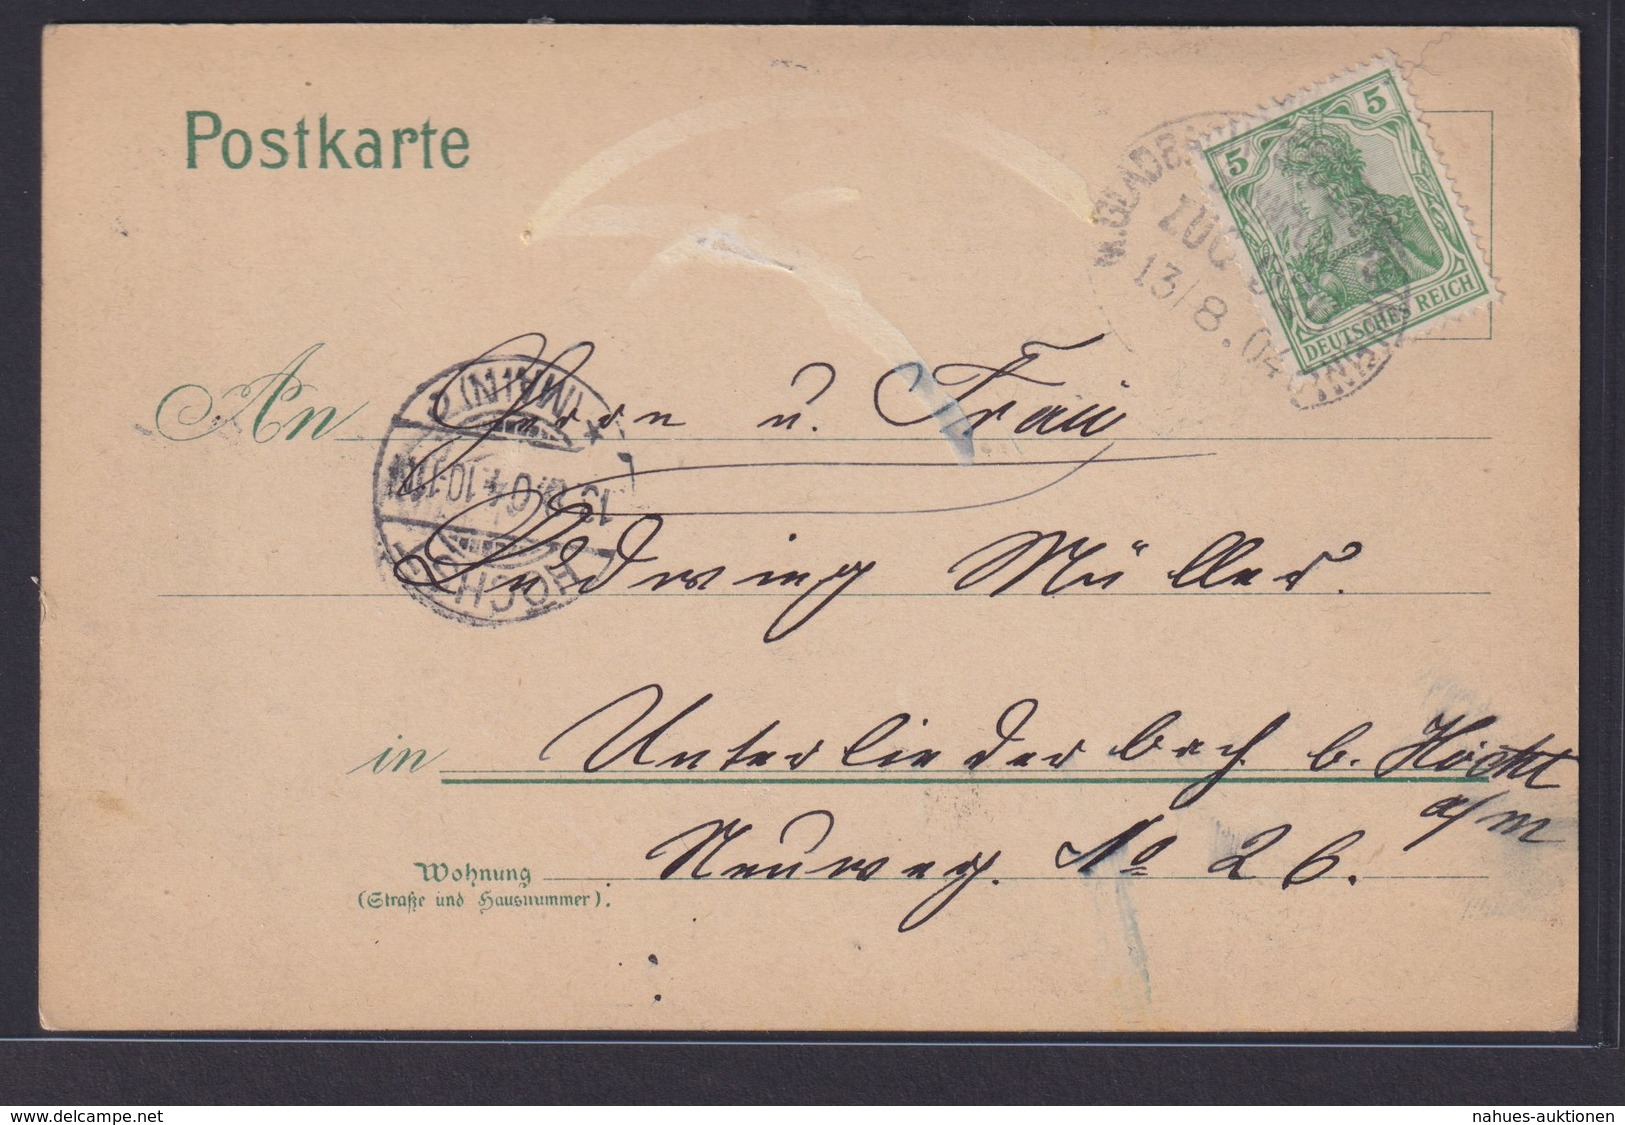 Postkarte
5 5
DEUTSCHES REICH
M.GLADBACH
ZUG
13/8.04
An Herrn u. Frau
(MAIN)
13. 8. 04. 10-11
HÖCHST
Ludwig Müller.
in Unterliederbach b. Höchst
a/M
Wohnung Neuweg. No 26.
(Straße und Hausnummer).
www.delcampe.net
nahues-auktionen